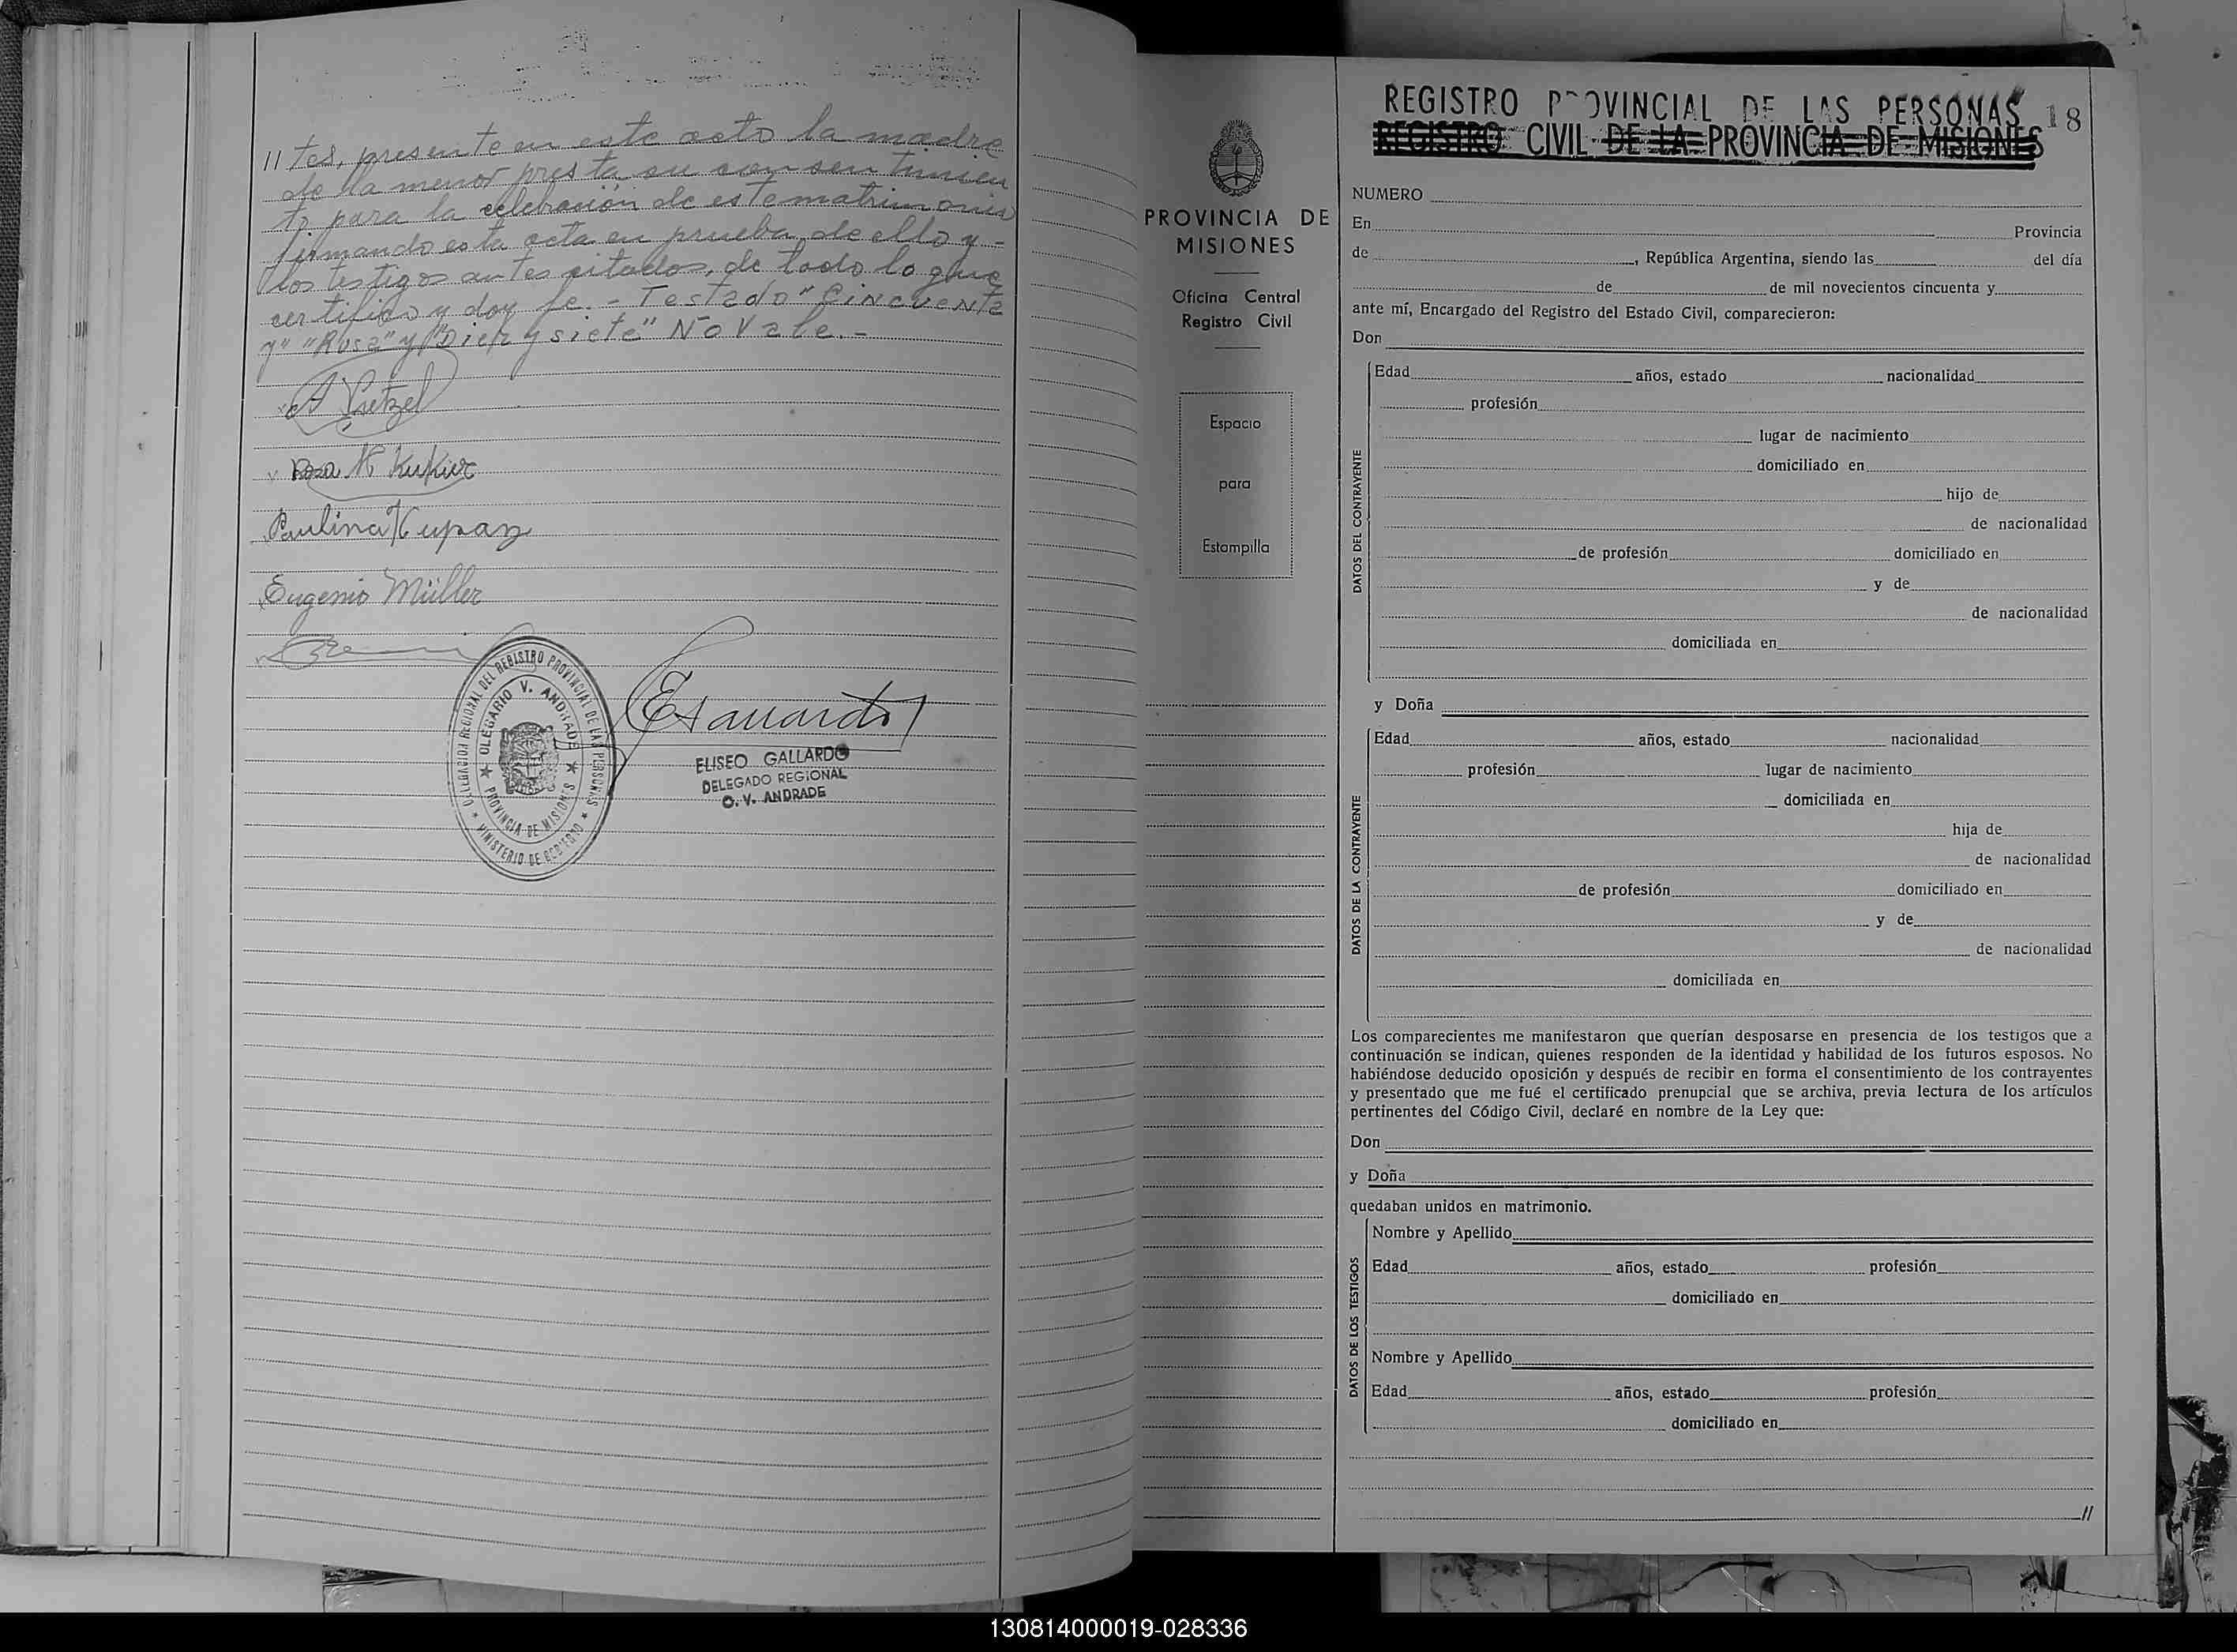 // tes, presente en este acto la madre
de la menor presta su consentimien
to para la celebración de este matrimonio
firmando esta acta en prueba de ello y -
los testigos antes citados, de todo lo que
certifico y doy fe. - Testado "Cincuenta
y" "Rosa" y "Diez y siete" No Vale. -
Rosa K Kukiur
Paulina Kupan
Eugenio Müller
DELEGACION REGIONAL DEL REGISTRO PROVINCIAL DE LAS PERSONAS
OLEGARIO V. ANDRADE
PROVINCIA DE MISIONES
MINISTERIO DE GOBIERNO
ELISEO GALLARDO
DELEGADO REGIONAL
O. V. ANDRADE
PROVINCIA DE
MISIONES
Oficina Central
Registro Civil
Espacio
para
Estampilla
REGISTRO PROVINCIAL DE LAS PERSONAS 18
REGISTRO CIVIL DE LA PROVINCIA DE MISIONES
NUMERO
En Provincia
de , República Argentina, siendo las del día
de de mil novecientos cincuenta y
ante mí, Encargado del Registro del Estado Civil, comparecieron:
Don
DATOS DEL CONTRAYENTE
Edad años, estado nacionalidad
profesión
lugar de nacimiento
domiciliado en
hijo de
de nacionalidad
de profesión domiciliado en
y de
de nacionalidad
domiciliada en
y Doña
DATOS DE LA CONTRAYENTE
Edad años, estado nacionalidad
profesión lugar de nacimiento
domiciliada en
hija de
de nacionalidad
de profesión domiciliado en
y de
de nacionalidad
domiciliada en
Los comparecientes me manifestaron que querían desposarse en presencia de los testigos que a
continuación se indican, quienes responden de la identidad y habilidad de los futuros esposos. No
habiéndose deducido oposición y después de recibir en forma el consentimiento de los contrayentes
y presentado que me fué el certificado prenupcial que se archiva, previa lectura de los artículos
pertinentes del Código Civil, declaré en nombre de la Ley que:
Don
y Doña
quedaban unidos en matrimonio.
DATOS DE LOS TESTIGOS
Nombre y Apellido
Edad años, estado profesión
domiciliado en
Nombre y Apellido
Edad años, estado profesión
domiciliado en
//
130814000019-028336